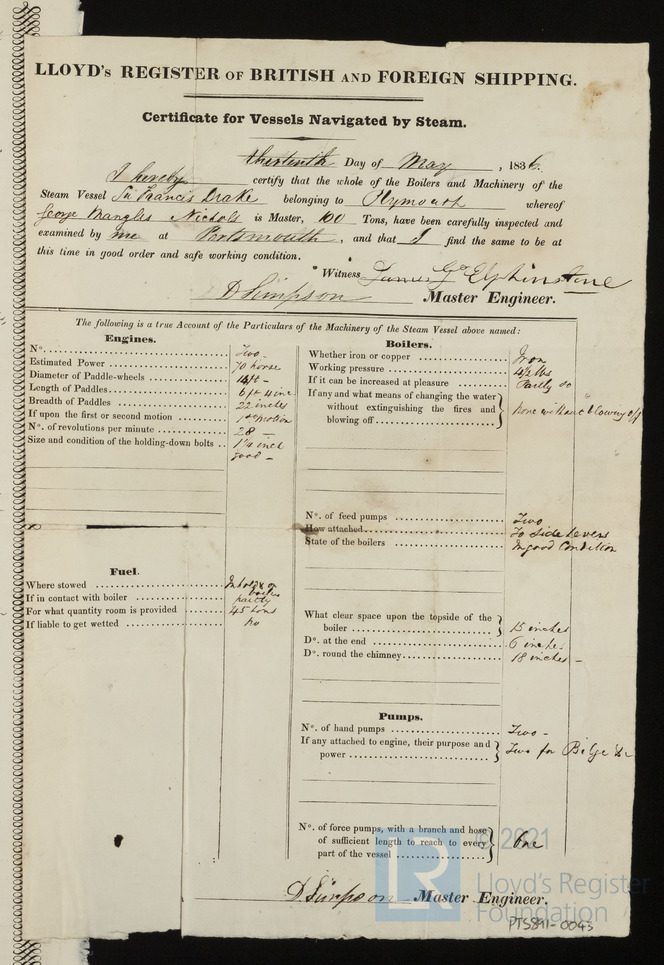 LLOYD's REGISTER OF BRITISH AND FOREIGN SHIPPING.
Certificate for Vessels Navigated by Steam.
thirteenth Day of May , 1836.
I hereby certify that the whole of the Boilers and Machinery of the
Steam Vessel Sir Francis Drake belonging to Plymouth whereof
George Mangles Nichols is Master, 100 Tons, have been carefully inspected and
examined by me at Portsmouth , and that I find the same to be at
this time in good order and safe working condition.
Witness James Go Elphinstone
D Simpson Master Engineer.
The following is a true Account of the Particulars of the Machinery of the Steam Vessel above named:
Engines.
No. Two -
Estimated Power 70 horse
Diameter of Paddle-wheels 14 ft -
Length of Paddles 6 ft 4 inc
Breadth of Paddles 22 inches
If upon the first or second motion 1st motion
No. of revolutions per minute 28 -
Size and condition of the holding-down bolts 1¼ inch
good -
Fuel.
Where stowed In hold & on
boilers
If in contact with boiler partly
For what quantity room is provided 45 tons
If liable to get wetted No
Boilers.
Whether iron or copper Iron
Working pressure 4½ lbs
If it can be increased at pleasure Partly so
If any and what means of changing the water
without extinguishing the fires and
blowing off None without blowing off
No. of feed pumps Two
How attached To Side Levers
State of the boilers In good Condition
What clear space upon the topside of the
boiler 15 inches
Do. at the end 6 inches
Do. round the chimney 18 inches -
Pumps.
No. of hand pumps Two -
If any attached to engine, their purpose and
power Two for Bilge &c
No. of force pumps, with a branch and hose
of sufficient length to reach to every
part of the vessel One
D Simpson Master Engineer.
© 2021
LR
Lloyd's Register
Foundation
PTS891-0043